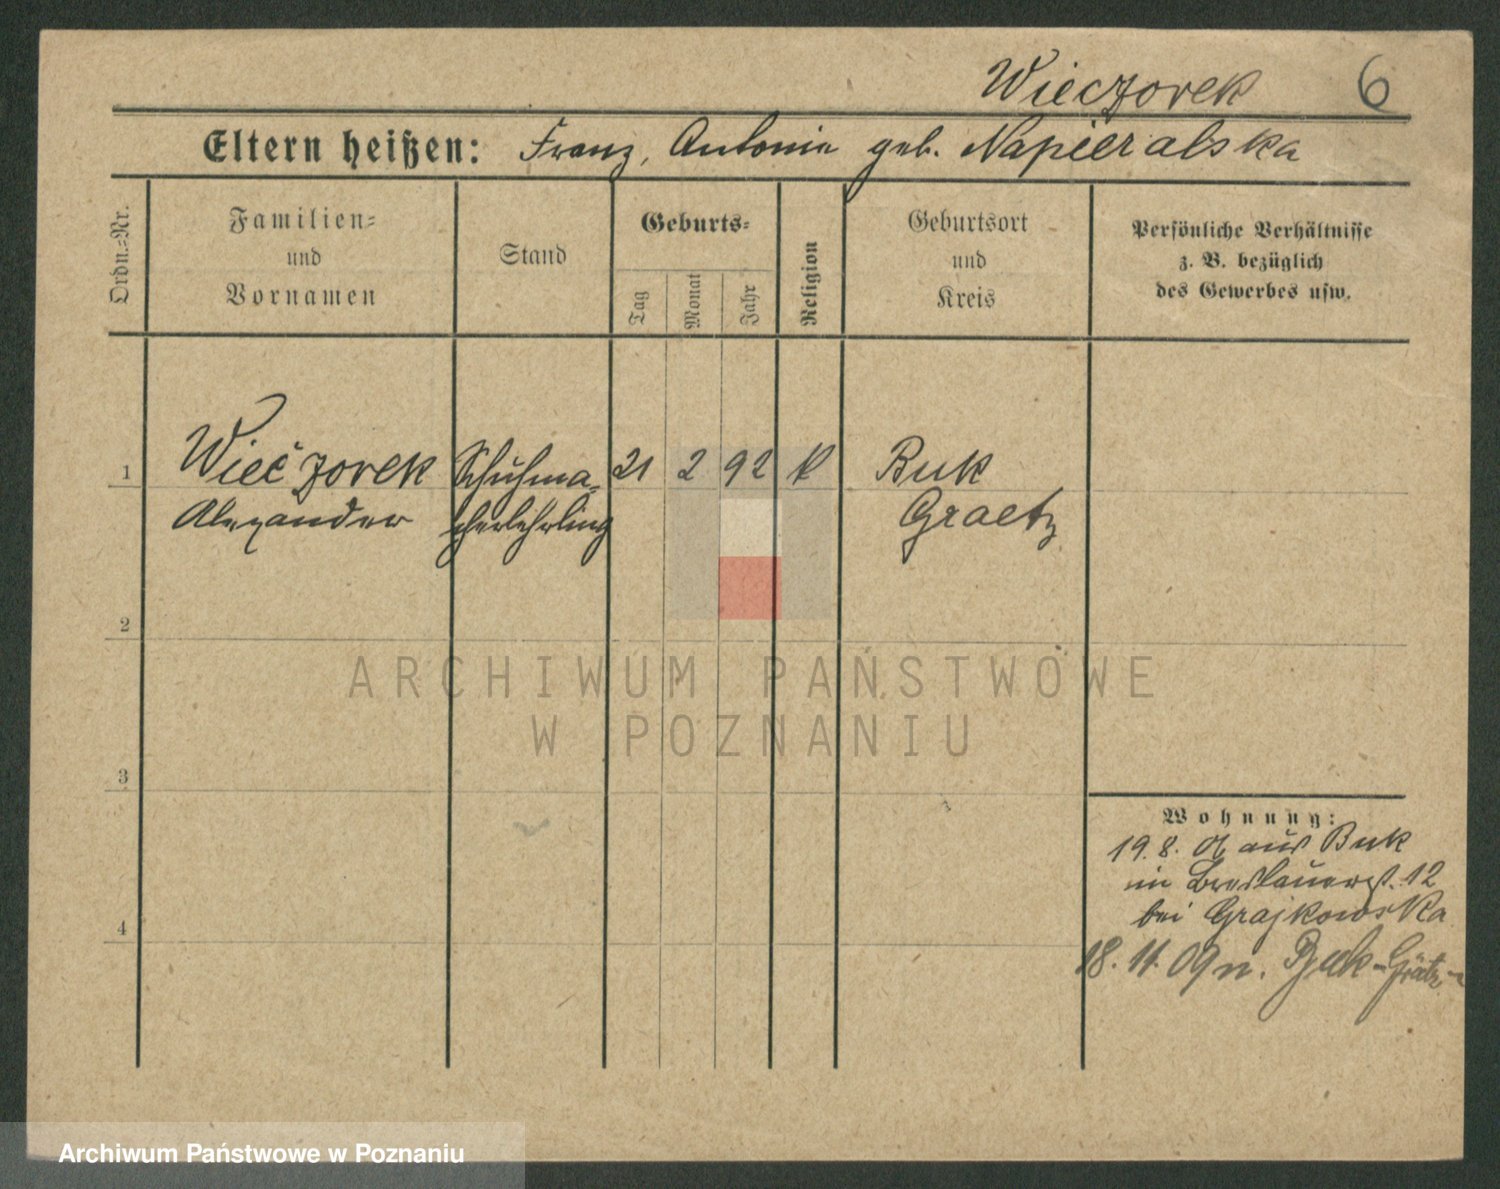 Wieczorek 6
Eltern heißen: Franz, Antonie geb. Napieralska
Ordn.=Nr.
Familien=
und
Vornamen
Stand
Geburts=
Tag
Monat
Jahr
Religion
Geburtsort
und
Kreis
Persönliche Verhältnisse
z. B. bezüglich
des Gewerbes usw.
1 Wieczorek Schuhma= 21 2 92 k Buk
Alexander cherlehrling Graetz
2
ARCHIWUM PAŃSTWOWE
W POZNANIU
3
Wohnung:
19. 8. 09 aus Buk
in Breslauerst. 12
bei Grajkowska
4
18. 11. 09 n. Buk-Grätz
Archiwum Państwowe w Poznaniu